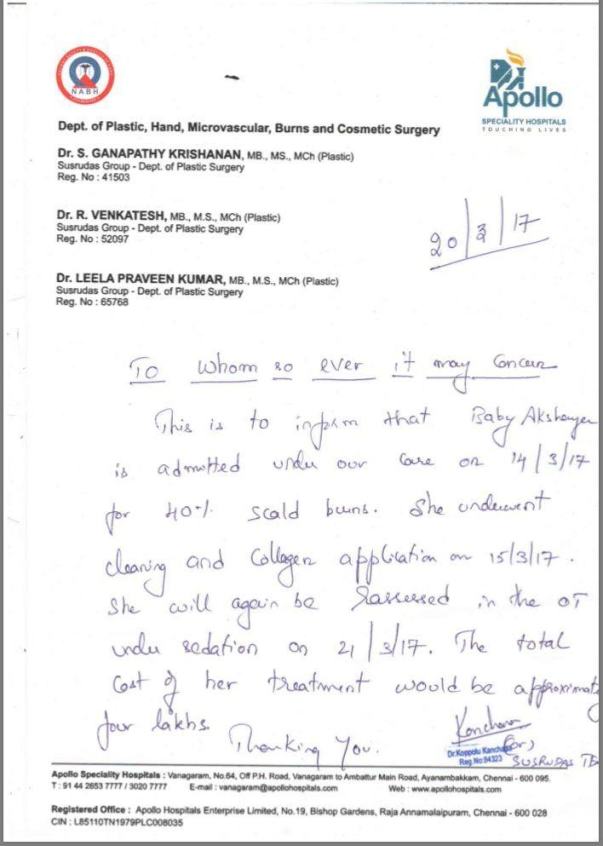 NABH
Apollo
SPECIALITY HOSPITALS
TOUCHING LIVES
Dept. of Plastic, Hand, Microvascular, Burns and Cosmetic Surgery
Dr. S. GANAPATHY KRISHANAN, MB., MS., MCh (Plastic)
Susrudas Group - Dept. of Plastic Surgery
Reg. No : 41503
Dr. R. VENKATESH, MB., M.S., MCh (Plastic)
Susrudas Group - Dept. of Plastic Surgery
Reg. No : 52097
20/3/17
Dr. LEELA PRAVEEN KUMAR, MB., M.S., MCh (Plastic)
Susrudas Group - Dept. of Plastic Surgery
Reg. No : 65768
To whom so ever it may concern
This is to inform that Baby
is admitted under our care on 14/3/17
for 40% scald burns. She underwent
cleaning and Collagen application on 15/3/17.
She will again be Reassessed in the OT
under sedation on 21/3/17. The total
cost of her treatment would be approximately
four lakhs. Thanking You.
Dr.Koppolu
Reg.No:94323
SUSRUDAS
Apollo Speciality Hospitals : Vanagaram, No.64, Off P.H. Road, Vanagaram to Ambattur Main Road, Ayanambakkam, Chennai - 600 095.
T : 91 44 2653 7777 / 3020 7777 E-mail : vanagaram@apollohospitals.com Web : www.apollohospitals.com
Registered Office : Apollo Hospitals Enterprise Limited, No.19, Bishop Gardens, Raja Annamalaipuram, Chennai - 600 028
CIN : L85110TN1979PLC008035